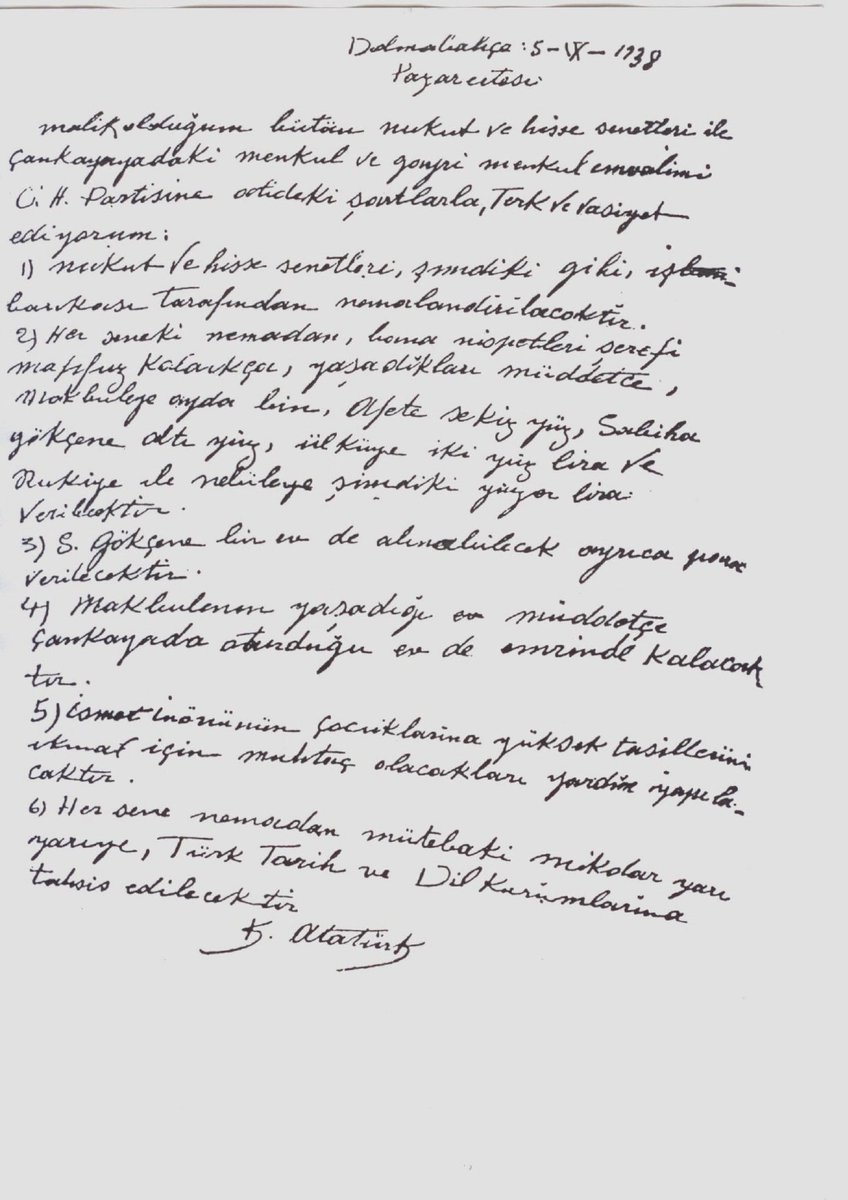 Dolmabahçe: 5-IX-1938
Pazarertesi
malik olduğum bütün nukut ve hisse senetleri ile
Çankayayadaki menkul ve gayri menkul emvalimi
C. H. Partisine atideki şartlarla, Terk ve vasiyet
ediyorum:
1) nukut ve hisse senetleri, şimdiki gibi, iş
bankası tarafından nemalandirilacaktır.
2) Her seneki nemadan, bana nispetleri şerefi
mahfuz kaldıkça, yaşadıkları müddetce,
Makbuleye ayda bin, Afete sekiz yüz, Sabiha
gökçene altı yüz, ülküye iki yüz lira ve
Rukiye ile nebileye şimdiki yüzer lira
verilecektir.
3) S. Gökçene bir ev de alınabilecek ayrıca para
verilecektir.
4) Makbulenin yaşadığı ev müddetçe
Çankayada oturduğu ev de emrinde kalacak
tır.
5) ismet inönünün çocuklarına yüksek tasillerini
ikmal için muhtaç olacakları yardım yapıla-
caktır.
6) Her sene nemadan mütebaki mikdar yarı
yarıye, Türk Tarih ve Dil kurumlarina
tahsis edilecektir
K. Atatürk